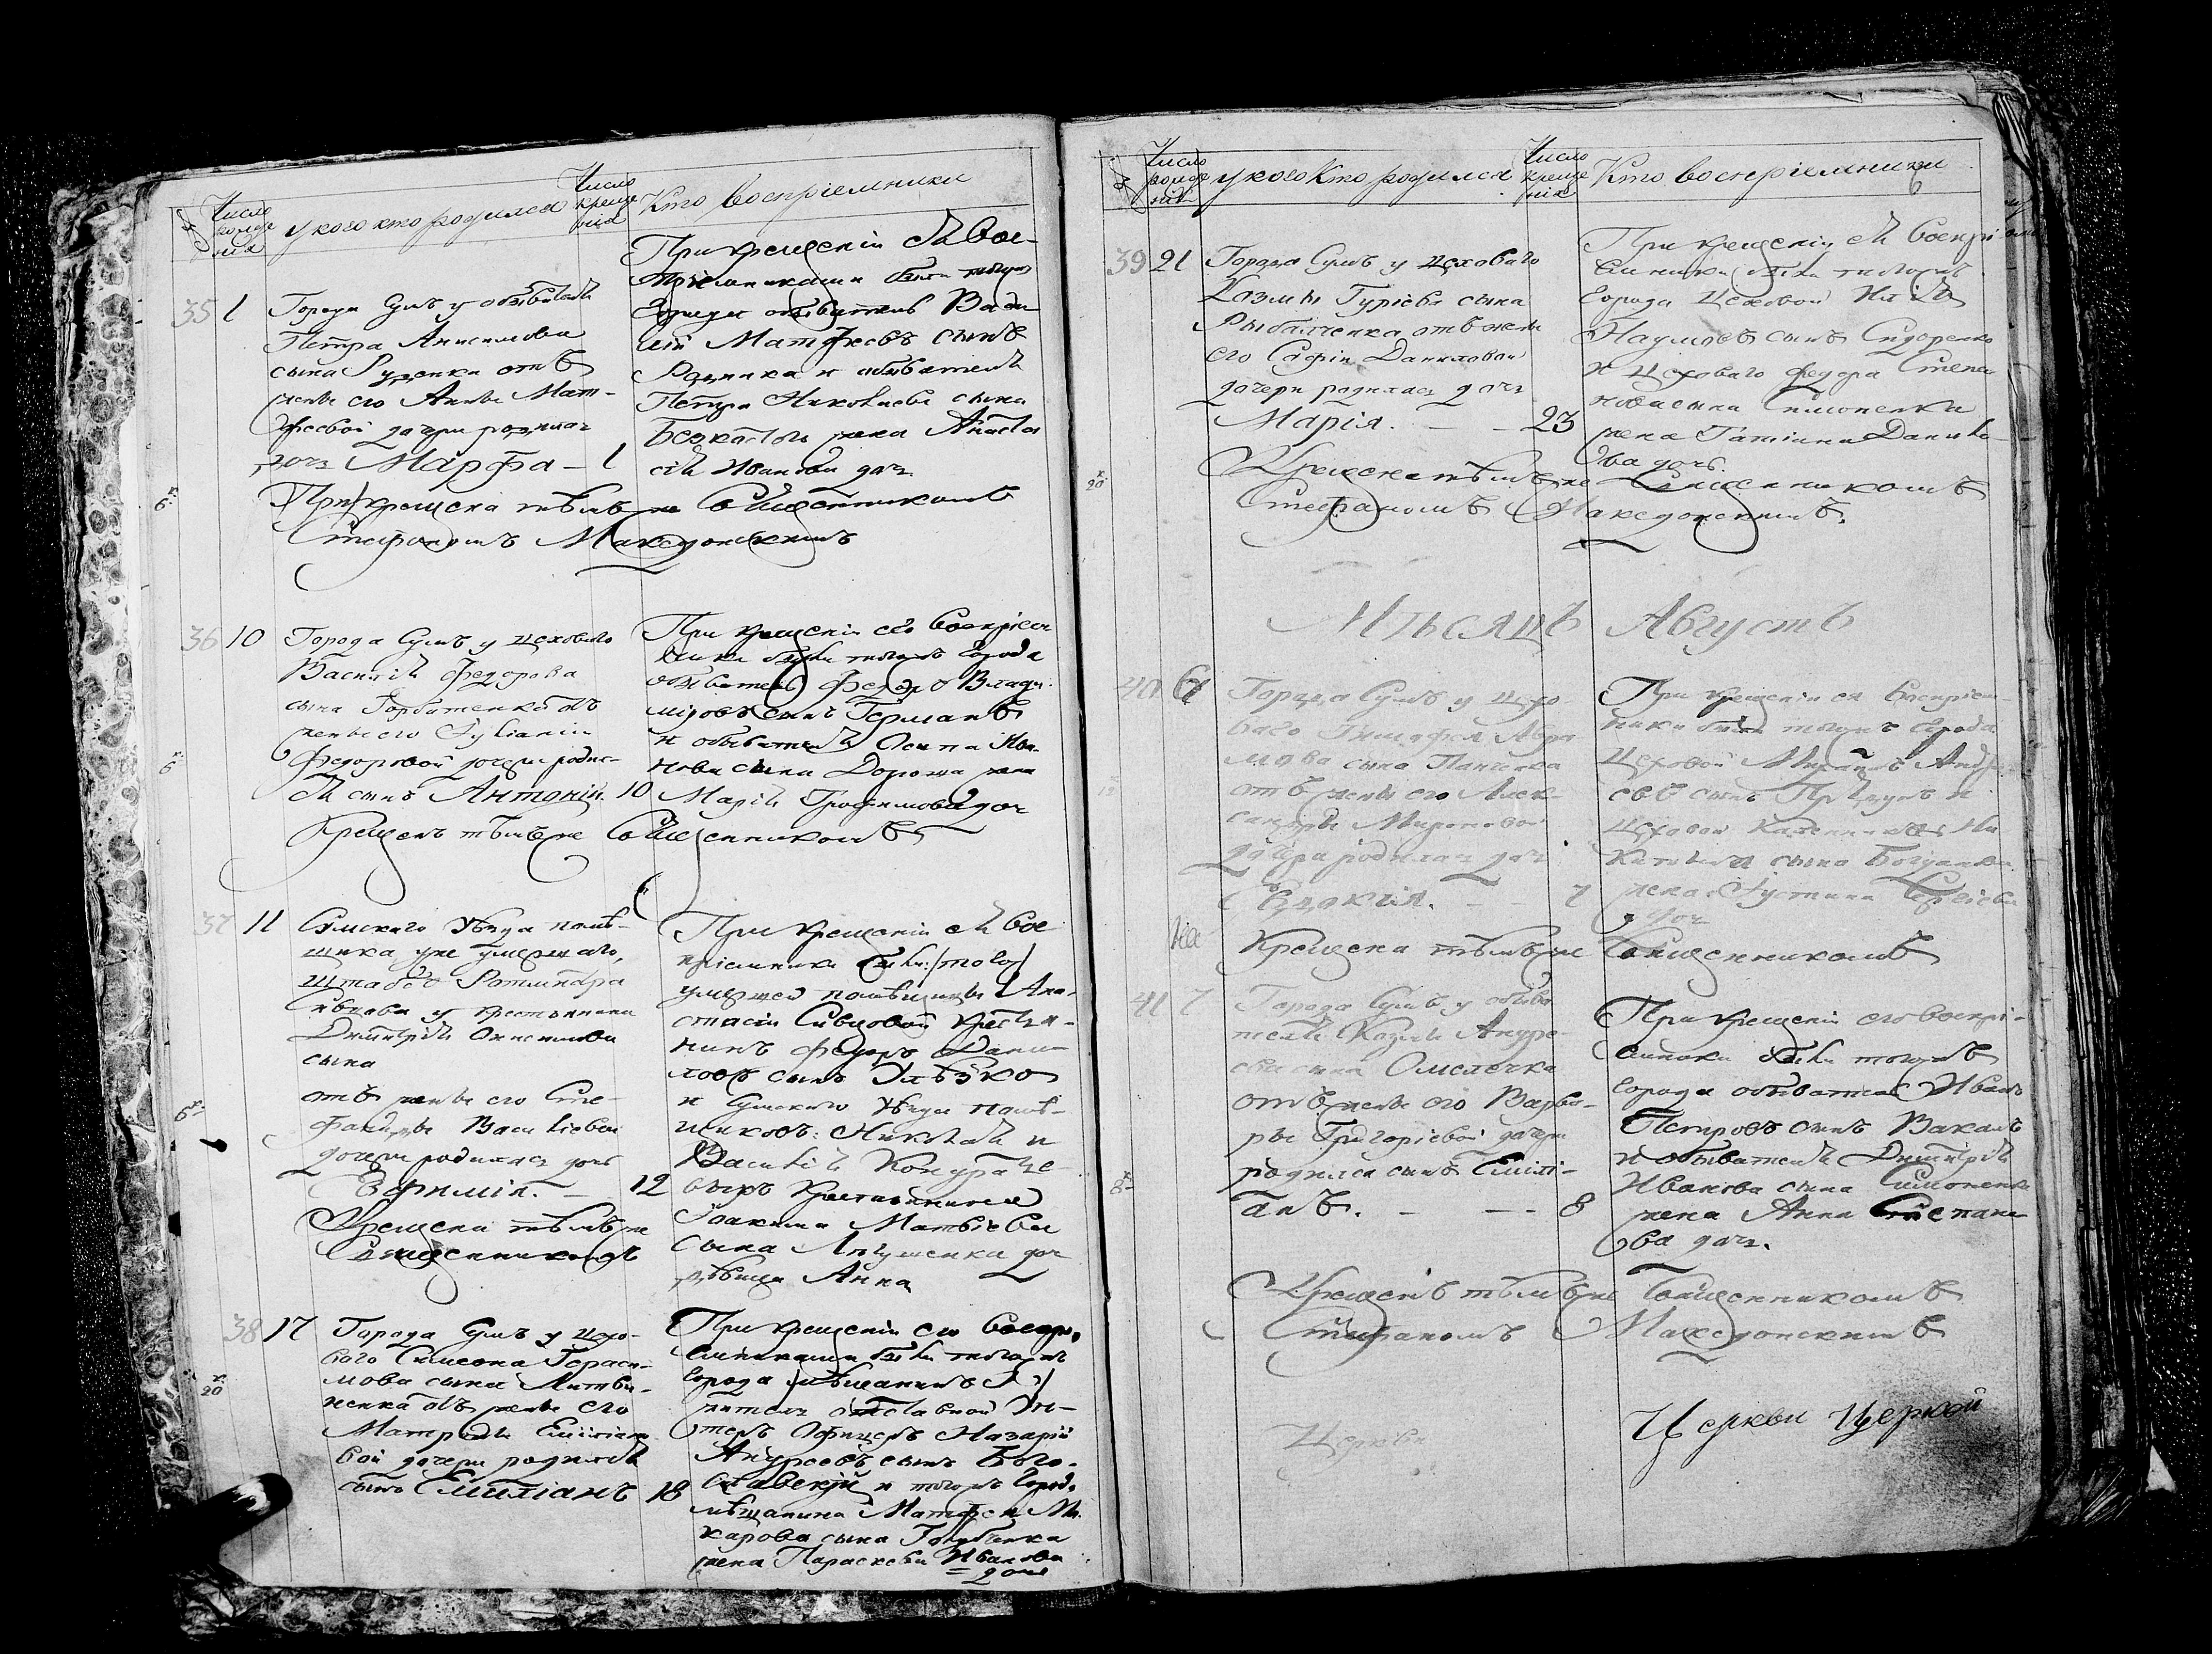 Число рожде нія
у кого кто родился
Число креще нія
Кто воспріемники
35 1
Города Сумъ у обывателя
Петра Анисимова
сына Руденка отъ
жены его Анны Мат-
феевой дочери родилась
дочь Марфа - 1
При крещеніи ея вос-
пріемниками были тогожъ
города обыватель Васи
лій Матфеевъ сынъ
и обывателя
Петра Николаева сына
жена Анастас
ія Иванова дочь
крещена тѣмъ же Священникомъ
Стефаномъ Македонскимъ
36 10
Города Сумъ у цеховаго
Василія Федорова
сына Горбатенка отъ
жены его Іуліаніи
Федоровой дочери родил-
ся сынъ Антоній. 10
При крещеніи его воспріем
ники были тогожъ города
обыватель Федоръ Влади
міровъ сынъ Германъ
и обывателя Осипа Ива
нова сына Дорожа жена
Марія Трофимова доч
Крещенъ тѣмъ же Священникомъ
37 11
Сумскаго Уѣзда помѣ-
щика уже умершаго,
штабсъ Ротмистра
у крестьянина
Димитрія Онисимова
сына
отъ жены его Сте-
фаниды Василіевой
дочери родилась дочь
Ефимія. - 12
Крещена тѣмъ же
Священникомъ
При крещеніи ея вос
пріемники были: /тогож/
умершей помѣщицы Ана-
стасіи Сивцовой крестья-
нинъ Федоръ Дани-
ловъ сынъ
и Сумскаго Уѣзда помѣ-
щиковъ: Николая и
Василія Кондратье
выхъ крестьянина
Іоакима Матвіева
сына дочь
дѣвица Анна
38 17
Города Сумъ у цехо-
ваго Симеона Гераси-
мова сына Литви-
ненка отъ жены его
Матроны Емиліано
вой дочери родился
сынъ Емиліанъ 18
При крещеніи его воспрі
емниками были тогожъ
города
житель отставной Ун-
теръ Офицеръ Назарій
Андреевъ сынъ Бого-
славскій и тогожъ город.
мѣщанина Матфея Ма
карова сына Голубенка
жена Параскева Иванова
дочь
Число рожде нія
у кого кто родился
Число креще нія
Кто воспріемники
39 21
Города Сумъ у цеховаго
Козмы Гуріева сына
Рыбалченка отъ жены
его Софіи Даниловой
дочери родилась дочь
Марія. - - 23
При крещеніи ея воспрі
емники были тогожъ
города цеховой Илія
Наумовъ сынъ Сидоренко
и цеховаго Федора Степа
нова сына Симоненка
жена Татіана Данило-
ва дочь.
Крещена тѣмъ же Священникомъ
Стефаномъ Македонскимъ.
Мѣсяцъ Августъ
40 6
Города Сумъ у цехо
ваго Тимофея Авра
мова сына Панченка
отъ жены его Алек
сандры Мироновой
дочери родилась доч
Евдокія. - - 7
При крещеніи ея воспріем-
ники были тогожъ города
цеховой Михаилъ Андре
евъ сынъ и
цеховой Ни
китина сына Богданова
жена Іустина Сергіева
доч
Крещена тѣмъ же Священникомъ
41 7
Города Сумъ у обыва
теля Козмы Андре
ева сына Омелечка
отъ жены его Варва-
ры Григоріевой дочери
родился сынъ Емилі-
анъ. - - - 8
При крещеніи его воспрі-
емники были тогожъ
города обыватель Иванъ
Петровъ сынъ Вакалъ
и обывателя Димитрія
Иванова сына Симоненка
жена Анна Степано
ва дочь.
Крещенъ тѣмъ же Священникомъ
Стефаномъ Македонскимъ
Церкви
Церкви Церкви